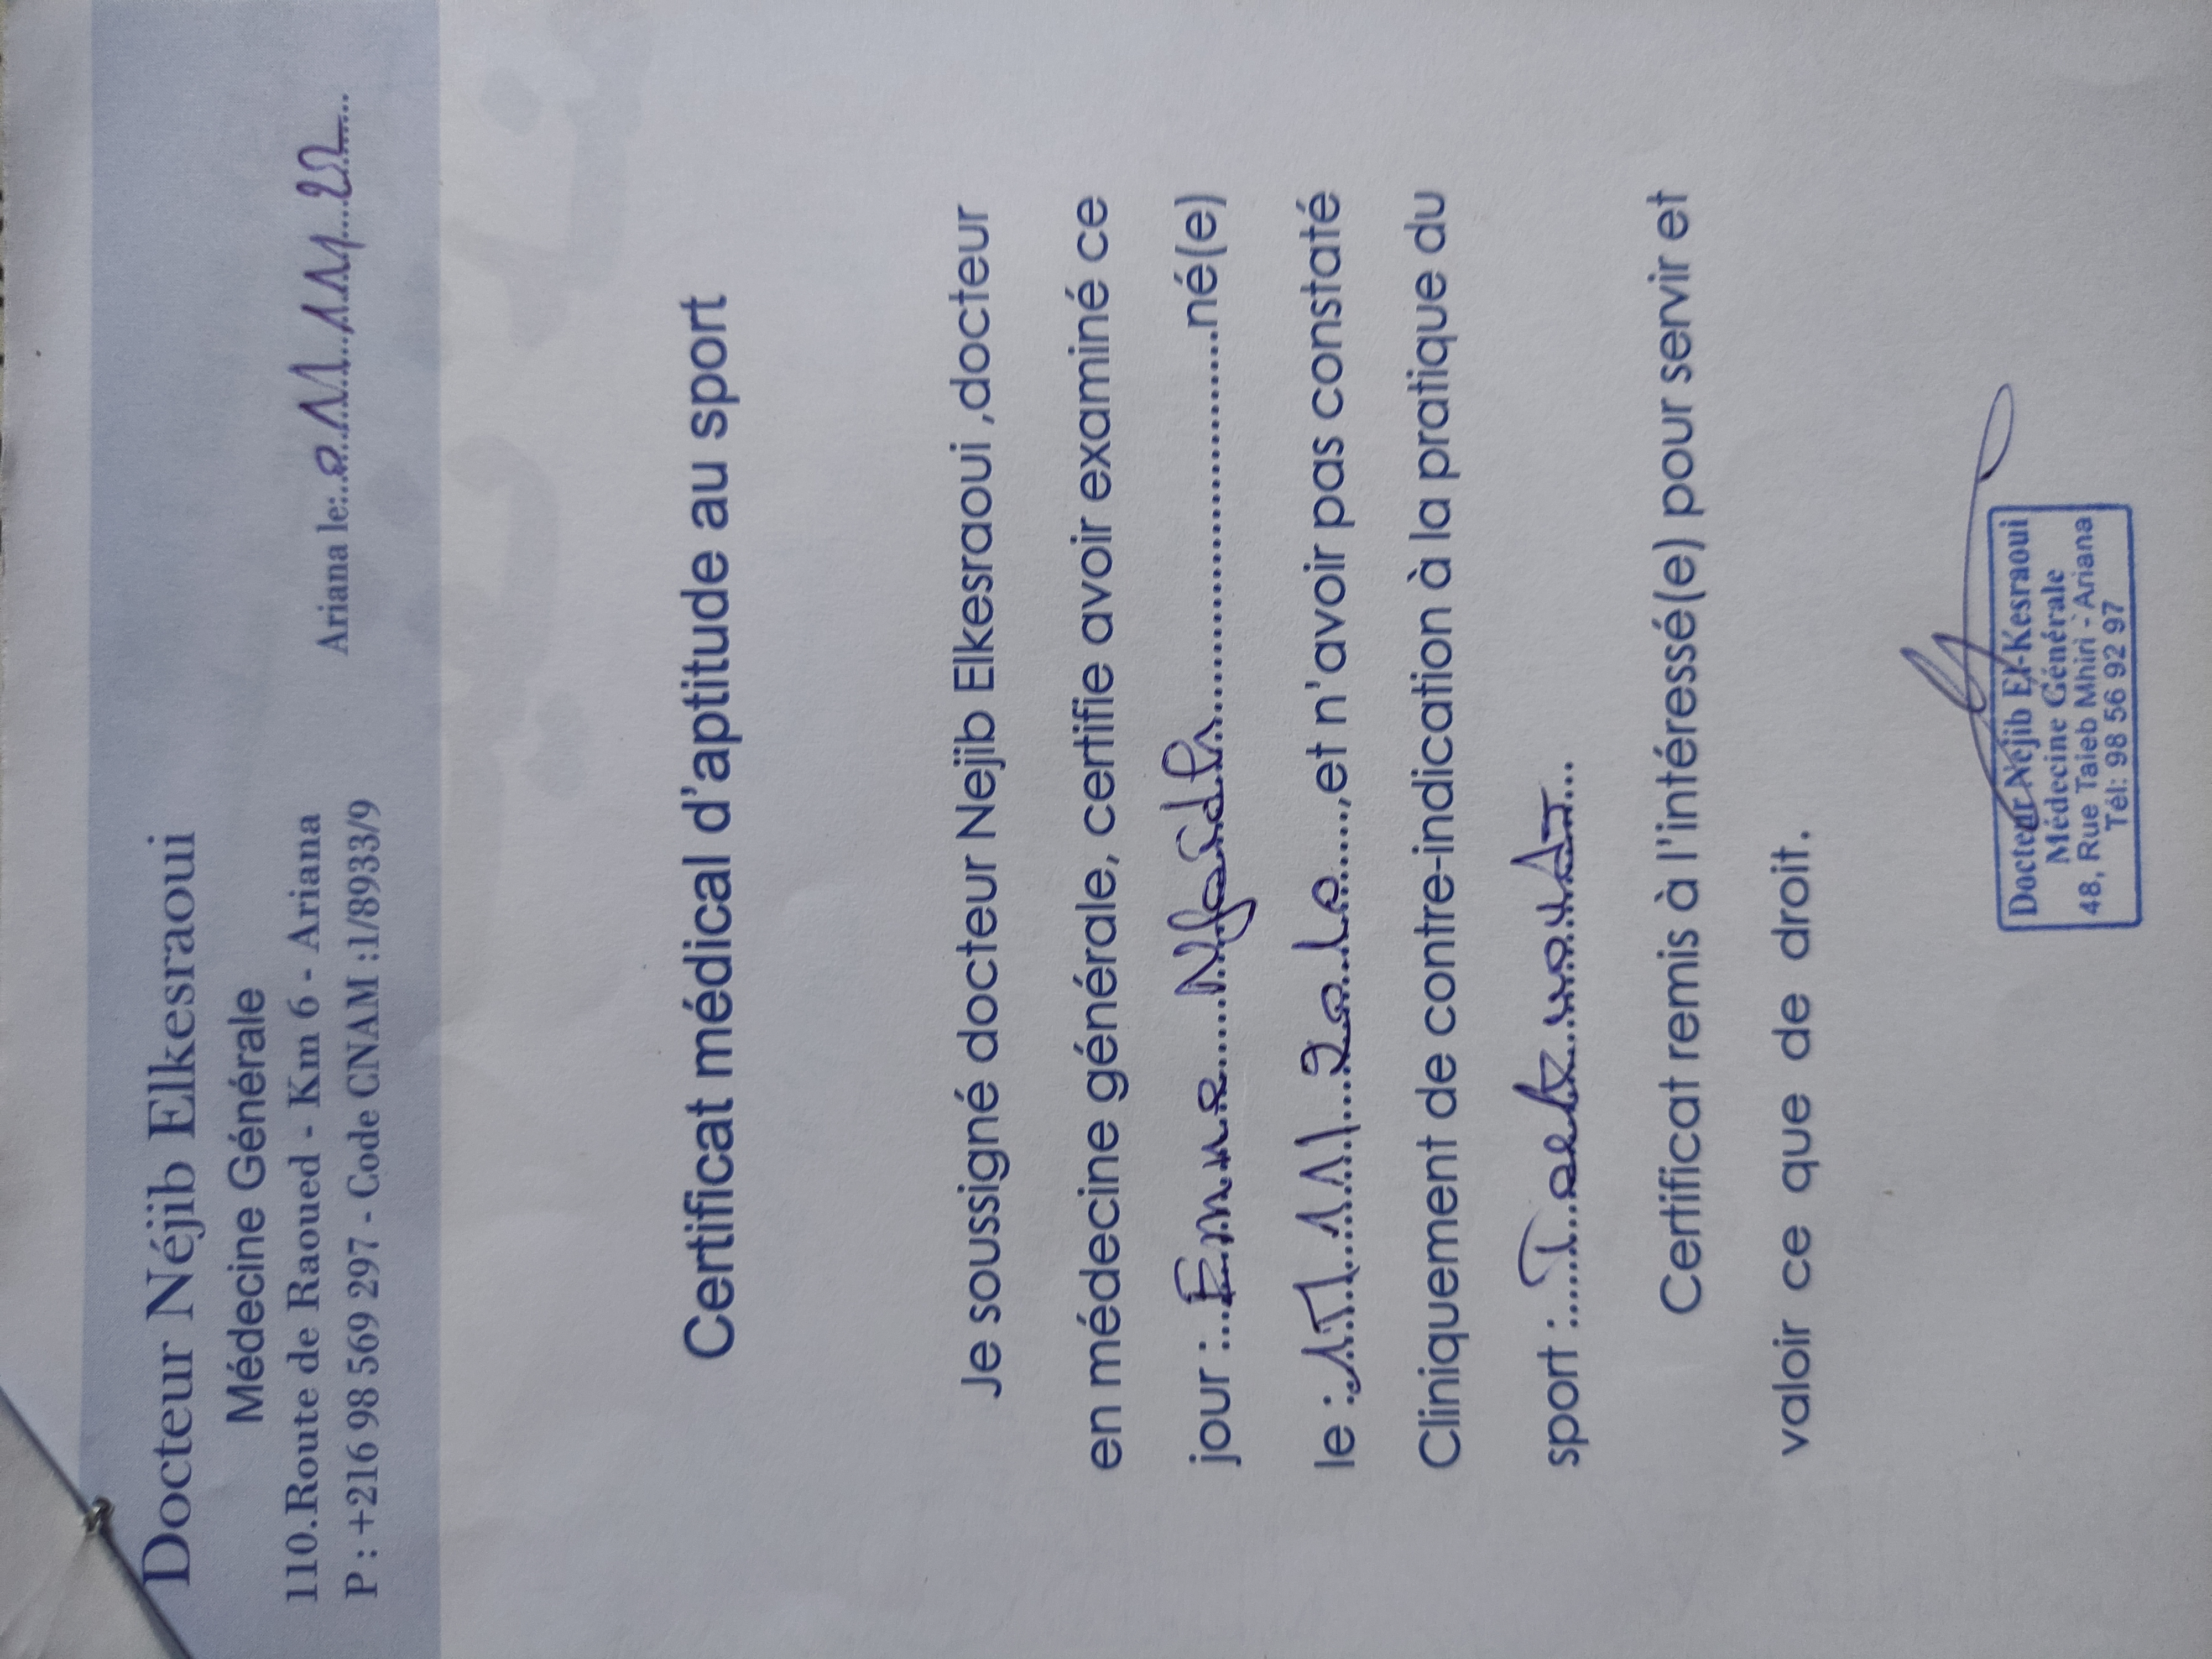 Docteur Néjib Elkesraoui
Médecine Générale
110.Route de Raoued - Km 6 - Ariana
P : +216 98 569 297 - Code CNAM :1/8933/9
Ariana le:
Certificat médical d'aptitude au sport
Je soussigné docteur Nejib Elkesraoui ,docteur
en médecine générale, certifie avoir examiné ce
jour : né(e)
le : ,et n'avoir pas constaté
Cliniquement de contre-indication à la pratique du
sport :
Certificat remis à l'intéressé(e) pour servir et
valoir ce que de droit.
Docteur Néjib El-Kesraoui
Médecine Générale
48, Rue Taieb Mhiri - Ariana
Tél: 98 56 92 97